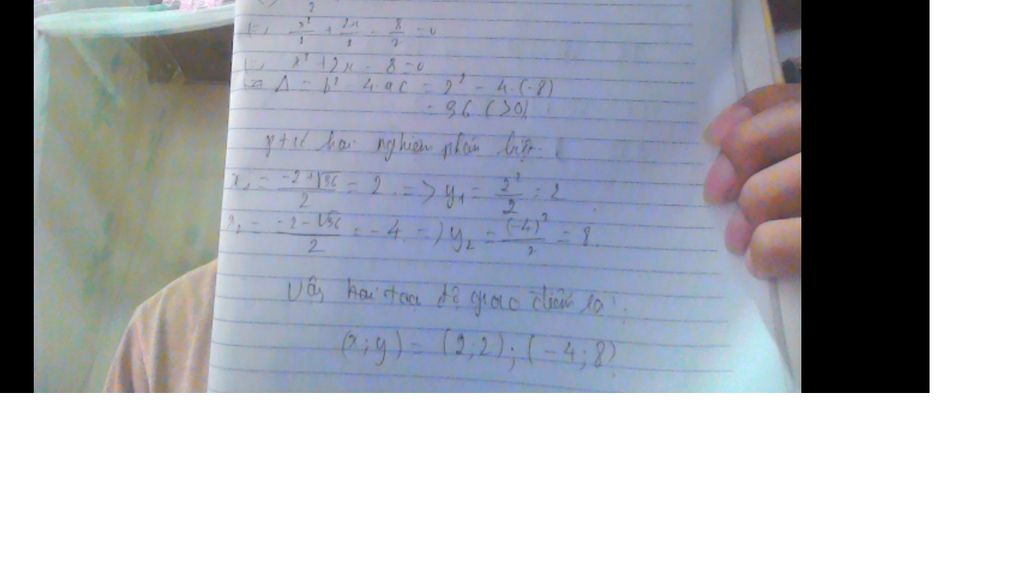 2
x²/2 + 2x/2 - 8/2 = 0
x² + 2x - 8 = 0
Δ = b² - 4.ac = 2² - 4.(-8)
= 36 (>0)
hai nghiệm phân biệt
x₁ = (-2+√36)/2 = 2 => y₁ = 2²/2 = 2
x₂ = (-2-√36)/2 = -4 => y₂ = (-4)²/2 = 8.
Vậy hai toạ độ giao điểm là:
(x;y) = (2;2); (-4;8)